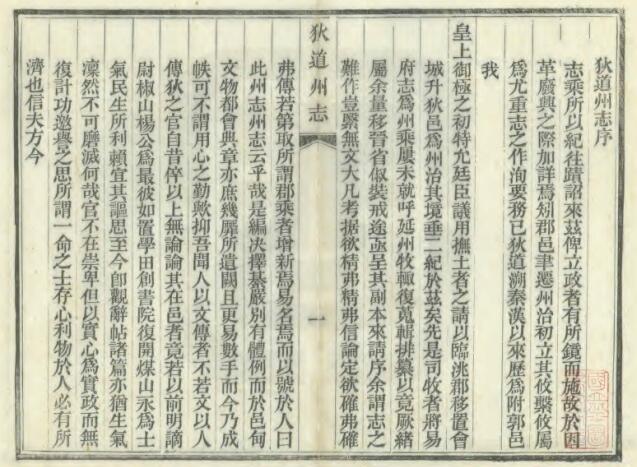 狄道州志序
志乘所以紀往蹟詔來茲俾立政者有所鏡而施故於因
革廢興之際加詳焉矧郡邑聿遷州治初立其攸繫攸屬
爲尤重志之作洵要務已狄道溯秦漢以來歷爲附郭邑
我
皇上御極之初特允廷臣議用撫土者之請以臨洮郡移置會
城升狄邑爲州治其境垂二紀於茲矣先是司牧者將易
府志爲州乘屢未就呼延州牧輙復蒐輯排纂以竟厥緒
屬余量移晉省俶裝戒途亟呈其副本來請序余謂志之
難作豈繄無文大凡考据欲精弗精弗信論定欲確弗確
狄道州志
一
弗傳若第取所謂郡乘者增新焉易名焉而以號於人曰
此州志州志云乎哉是編决擇綦嚴別有體例而於邑甸
文物都會典章亦庶幾靡所遺闕且更易數手而今乃成
帙可不謂用心之勤歟抑吾聞人以文傳者不若文以人
傳狄之官自昔倅以上無論論其在邑者竟若以前明謫
尉椒山楊公爲最彼如置學田創書院復開煤山永爲士
氣民生所利賴宜其謳思至今卽觀辭帖諸篇亦猶生氣
凜然不可磨滅何哉官不在崇卑但以實心爲實政而無
復計功邀譽之思所謂一命之士存心利物於人必有所
濟也信夫方今